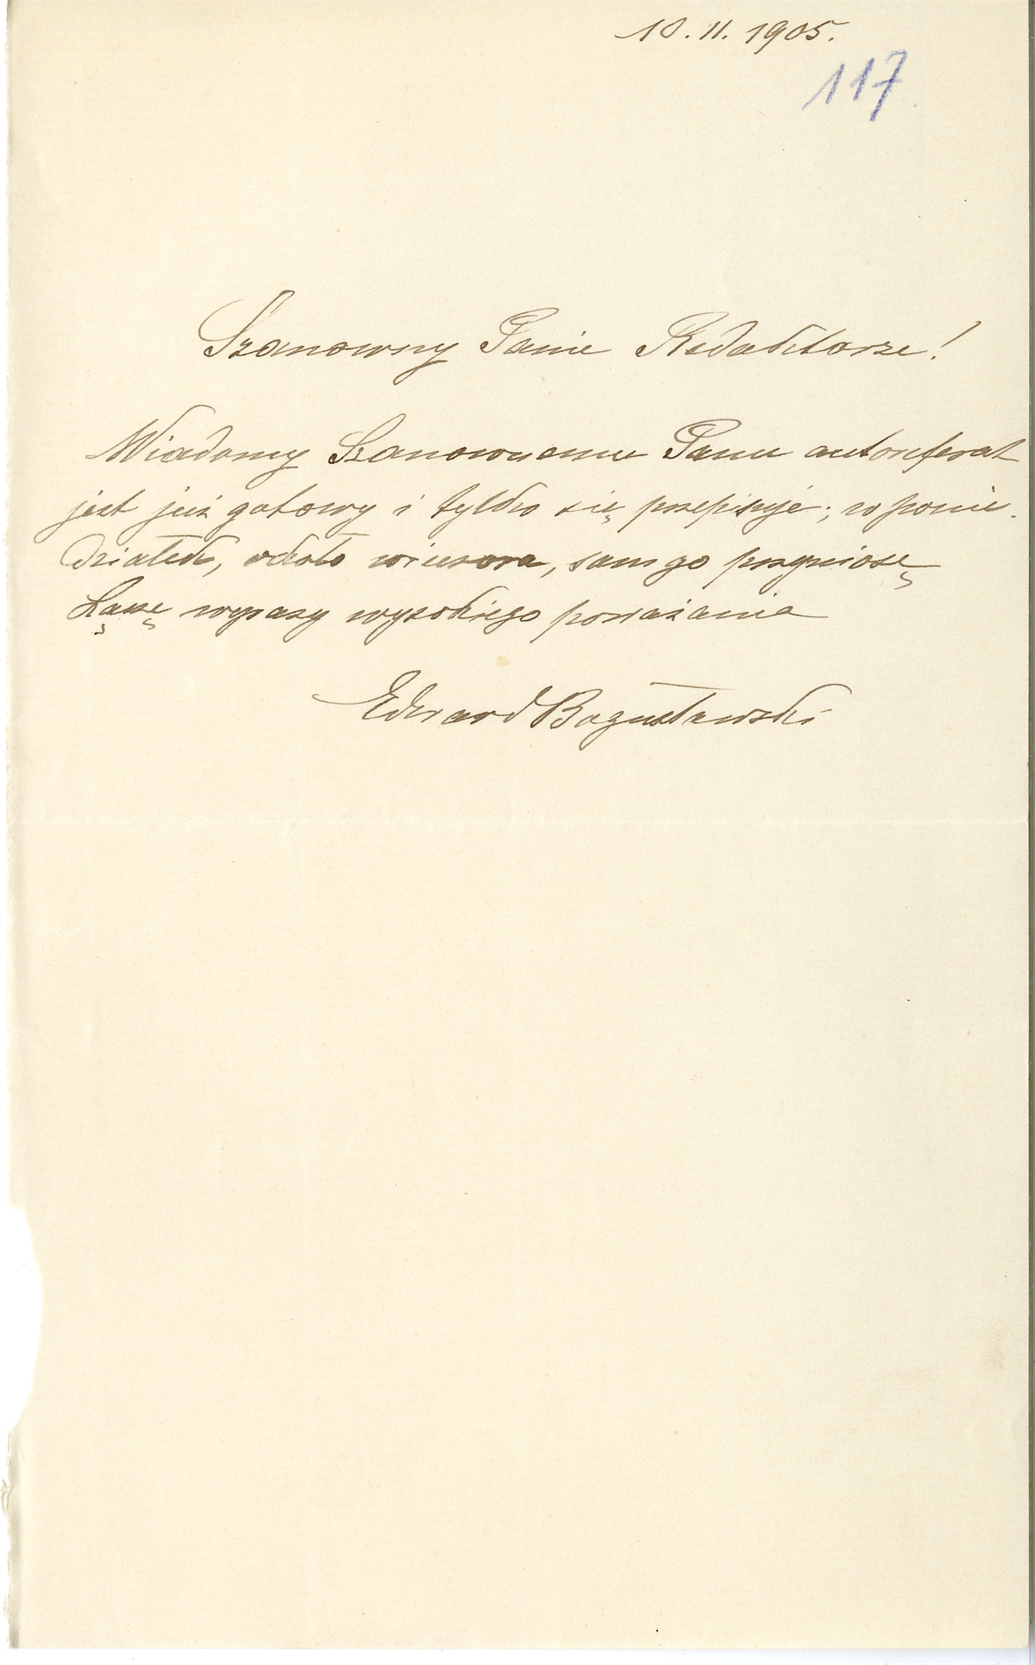 10. II. 1905.
117
Szanowny Panie Redaktorze!
Wiadomy Szanownemu Panu autoreferat
jest już gotowy i tylko się przepisuje; w ponie-
działek, około wieczora, sam go przyniosę
Łączę wyrazy wysokiego poważania
Edward Bogusławski